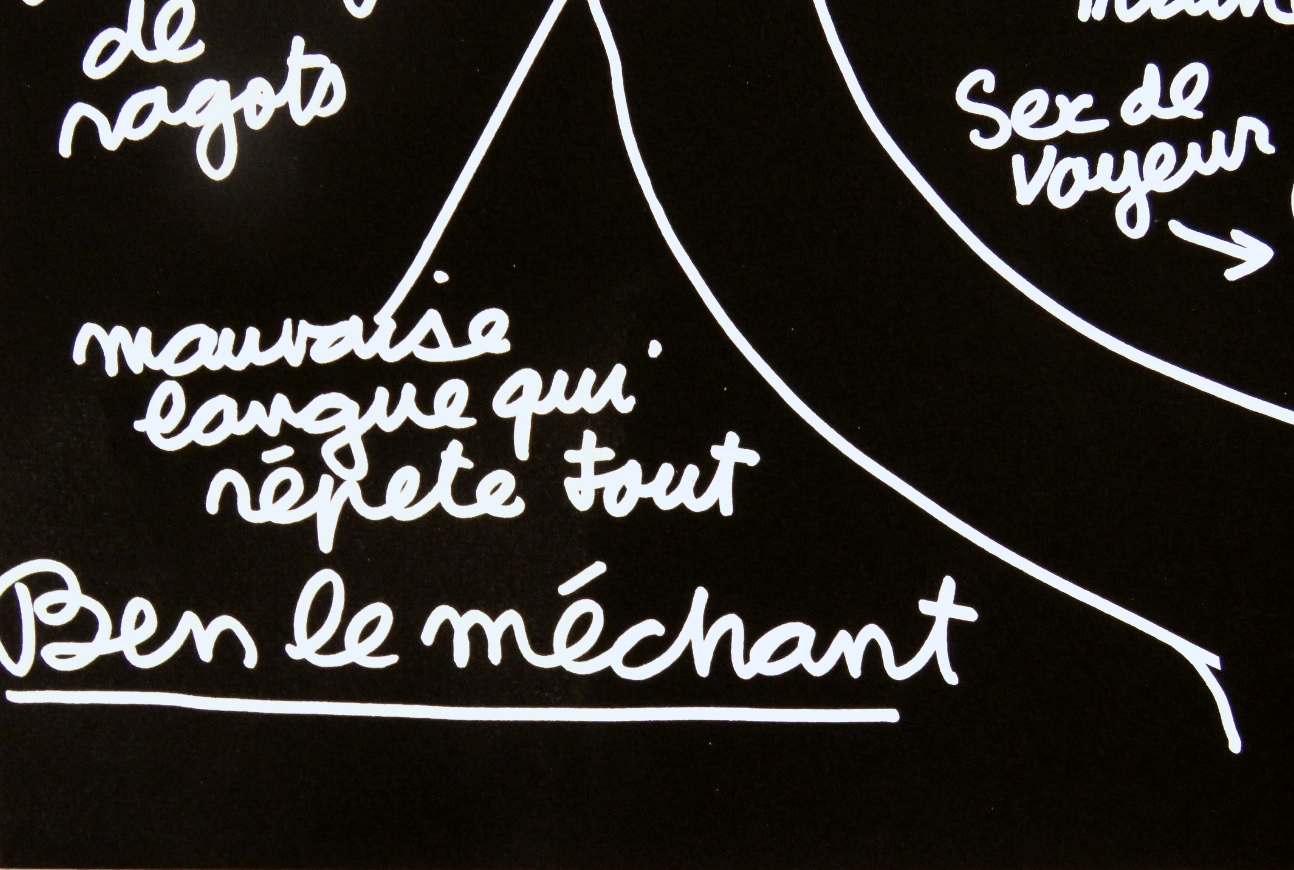 de
ragots
Sex de
voyeur
mauvaise
langue qui
répete tout
Ben le méchant